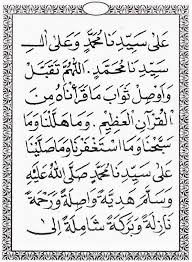 عَلَى سَيِّدِنَا مُحَمَّدٍ وَعَلَى اٰلِ
سَيِّدِنَا مُحَمَّدٍ. اَللّٰهُمَّ تَقَبَّلْ
وَاَوْصِلْ ثَوَابَ مَا قَرَأْنَاهُ مِنَ
الْقُرْآنِ الْعَظِيْمِ. وَمَا هَلَّلْنَا وَمَا
سَبَّحْنَا وَمَا اسْتَغْفَرْنَا وَمَا صَلَّيْنَا
عَلَى سَيِّدِنَا مُحَمَّدٍ صَلَّى اللهُ عَلَيْهِ
وَسَلَّمَ هَدِيَّةً وَاصِلَةً وَرَحْمَةً
نَازِلَةً وَبَرَكَةً شَامِلَةً اِلَى